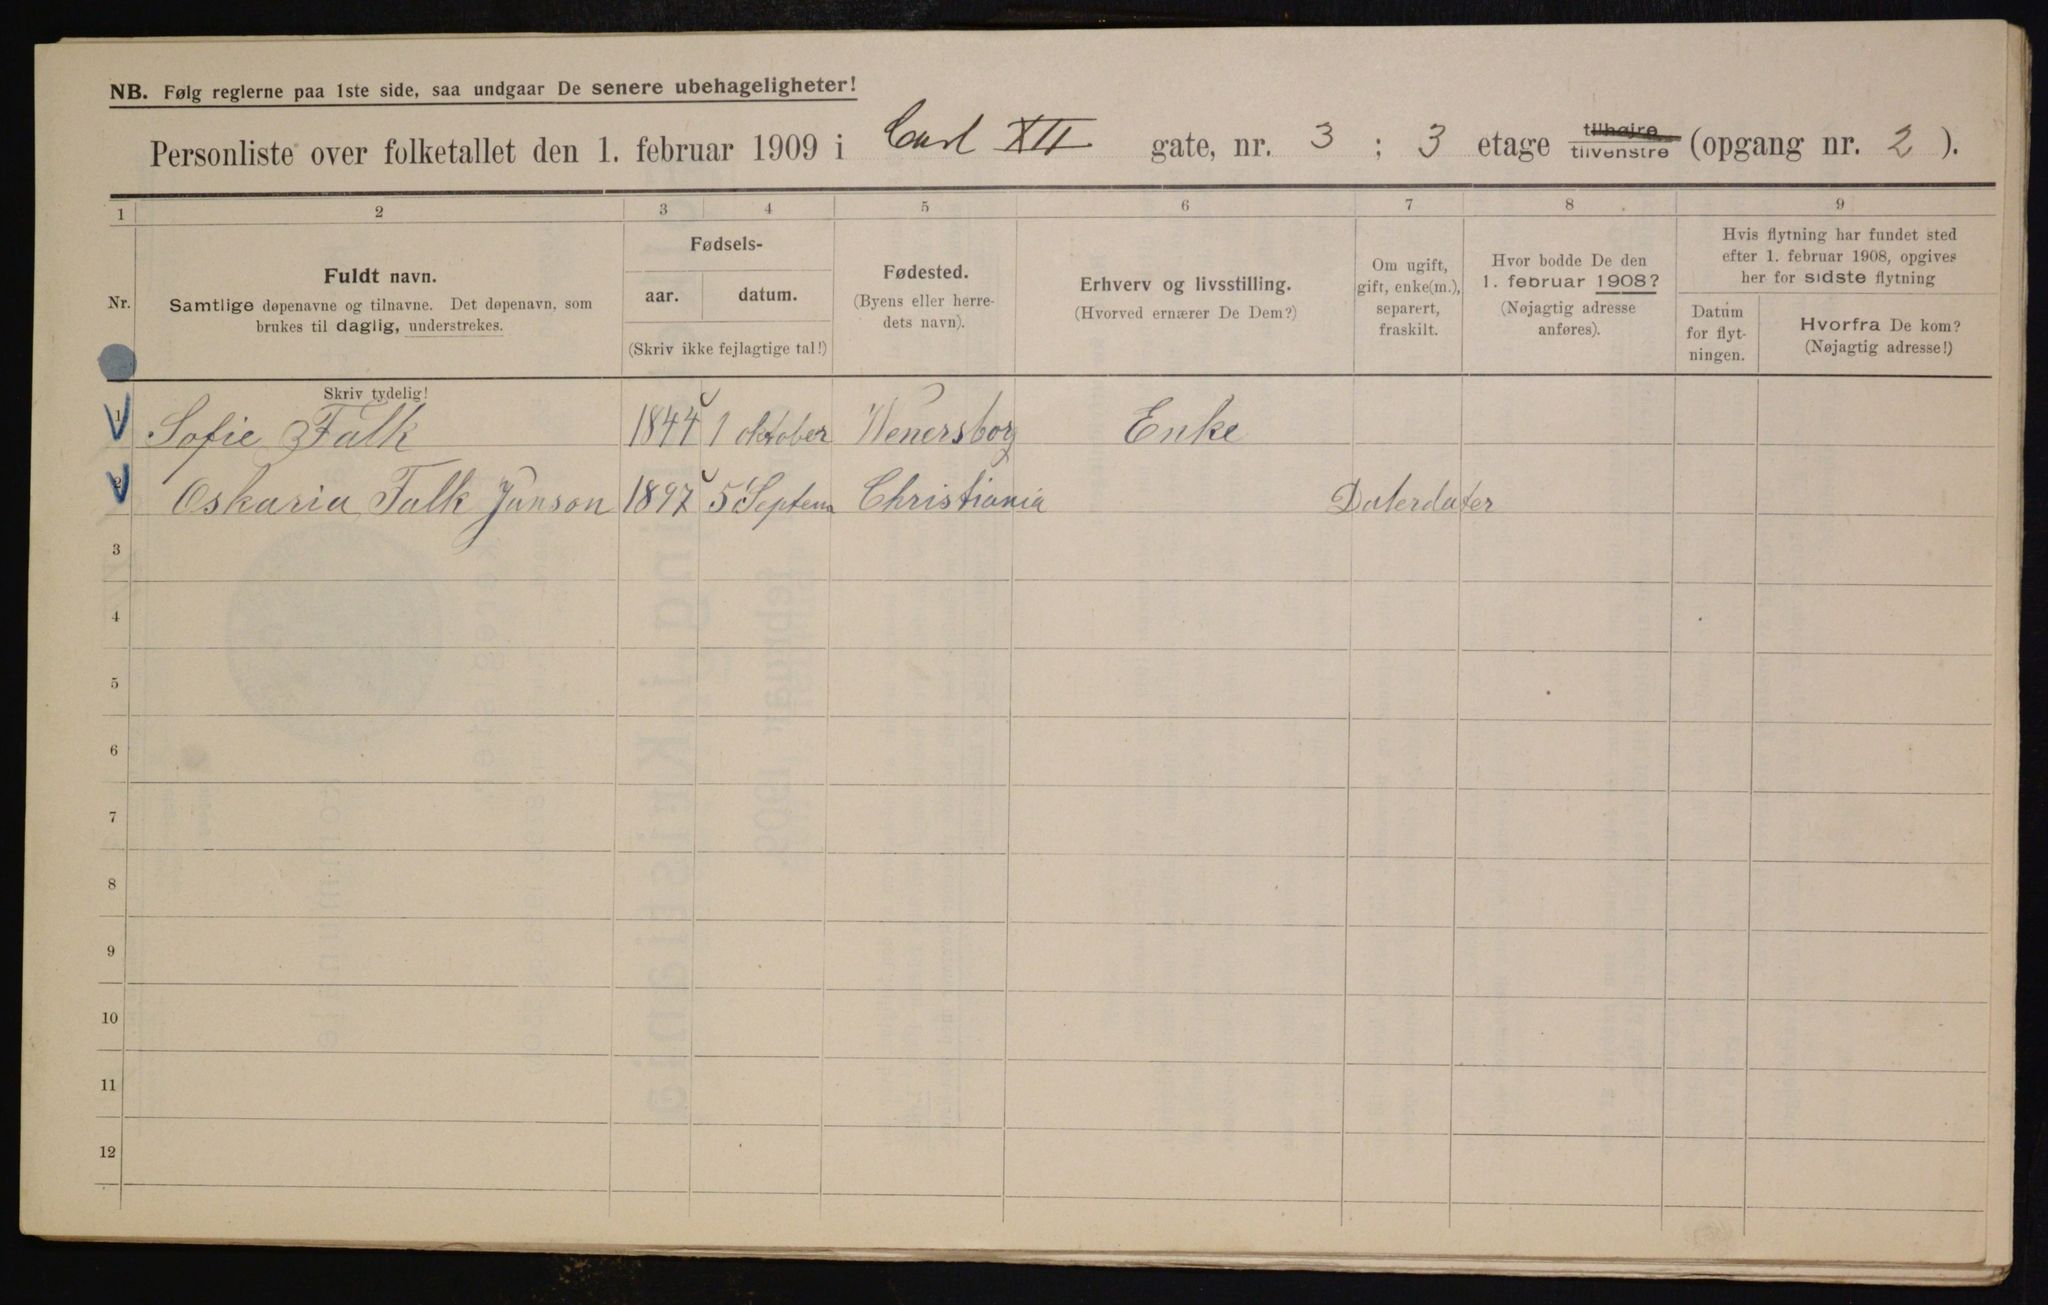 NB. Følg reglerne paa 1ste side, saa undgaar De senere ubehageligheter!
Personliste over folketallet den 1. februar 1909 i Carl XII gate, nr. 3 ; 3 etage tilhøjre tilvenstre (opgang nr. 2 ).
1 2 3 4 5 6 7 8 9
Nr.
Fuldt navn.
Samtlige døpenavne og tilnavne. Det døpenavn, som
brukes til daglig, understrekes.
Fødsels-
aar. datum.
(Skriv ikke fejlagtige tal!)
Fødested.
(Byens eller herre-
dets navn).
Erhverv og livsstilling.
(Hvorved ernærer De Dem?)
Om ugift,
gift, enke(m.),
separert,
fraskilt.
Hvor bodde De den
1. februar 1908?
(Nøjagtig adresse
anføres).
Hvis flytning har fundet sted
efter 1. februar 1908, opgives
her for sidste flytning
Datum
for flyt-
ningen.
Hvorfra De kom?
(Nøjagtig adresse!)
Skriv tydelig!
1 Sofie Falk 1844 1 oktober Wenersborg Enke
2 Oskaria Falk Janson 1897 5 Septem Christiania Daterdater
3
4
5
6
7
8
9
10
11
12